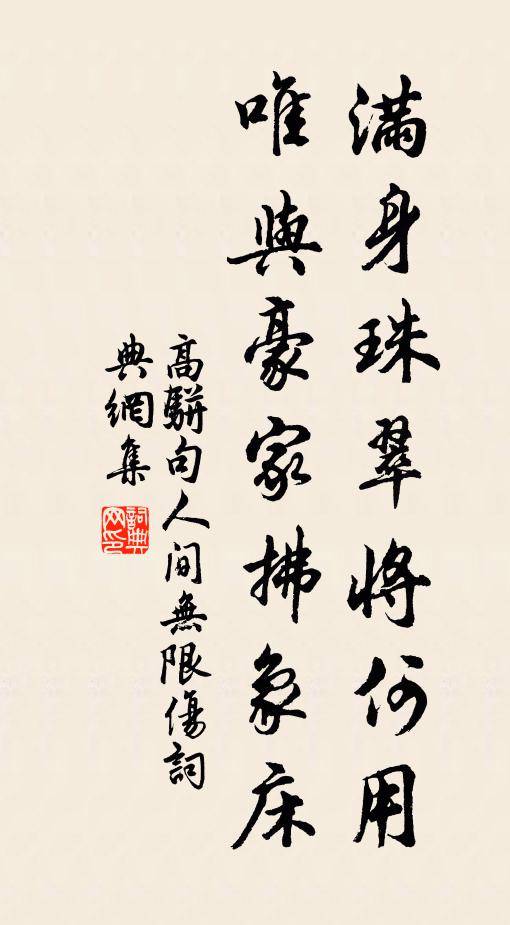 滿身珠翠將何用
唯與豪家拂象床
高駢句人間無限傷詞
典網集
詞典网印